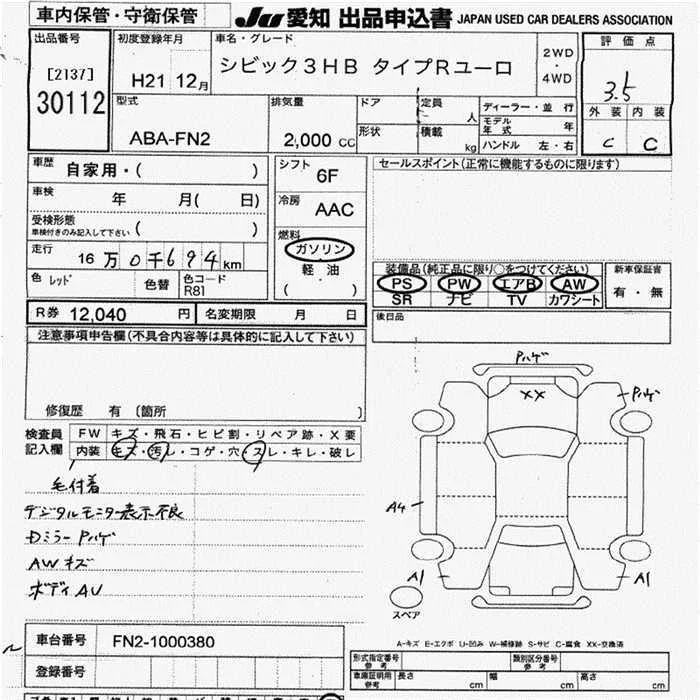 車内保管・守衛保管
JU 愛知 出品申込書 JAPAN USED CAR DEALERS ASSOCIATION
出品番号
[2137]
30112
初度登録年月
H21 12月
車名・グレード
シビック3HB タイプRユーロ
2WD
・
4WD
評価点
3.5
外装 内装
C C
型式
ABA-FN2
排気量
2,000 CC
ドア
形状
定員 人
積載 kg
ディーラー・並行
モデル年式 年
ハンドル 左・右
車歴 自家用・( )
車検 年 月( 日)
受検形態
車検付きのみ記入して下さい ( )
走行 16万0千694km
色 レッド 色替 色コード R81
シフト 6F
冷房 AAC
燃料
ガソリン
軽・油
( )
セールスポイント(正常に機能するものに限ります)
装備品(純正品に限り○をつけてください)
PS PW エアB AW
SR ナビ TV カワシート
新車保証書
有・無
R券 12,040 円 名変期限 月 日
後日品
注意事項申告欄(不具合内容等は具体的に記入して下さい)
修復歴 有 〔箇所 〕
検査員記入欄
FW キズ・飛石・ヒビ割・リペア跡・X要
内装 キズ・汚レ・コゲ・穴・スレ・キレ・破レ
毛付着
デジタルモニター表示不良
Dミラー Pハゲ
AWキズ
ボディAU
Pハゲ
XX
Pハゲ
A4
A1
A1
スペア
A-キズ E-エクボ U-凹み W-補修跡 S-サビ C-腐食 XX-交換済
車台番号 FN2-1000380
登録番号
形式指定番号 参考
類別区分番号 参考
車庫証明用 参考 長さ cm 幅 cm 高さ cm